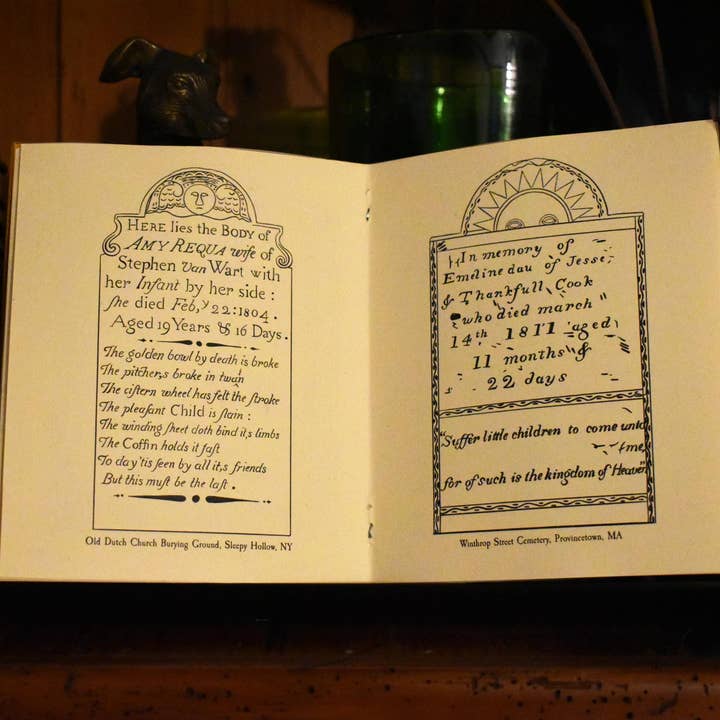 HERE lies the BODY of
AMY REQUA wife of
Stephen Van Wart with
her Infant by her side :
ſhe died Feb,y 22:1804.
Aged 19 Years & 16 Days.
The golden bowl by death is broke
The pitcher,s broke in twain
The ciſtern wheel has felt the ſtroke
The pleaſant Child is ſlain :
The winding ſheet doth bind it,s limbs
The Coffin holds it faſt
To day 'tis ſeen by all it,s friends
But this muſt be the laſt .
Old Dutch Church Burying Ground, Sleepy Hollow, NY
In memory of
Emeline dau of Jesse
& Thankfull Cook
who died march
14th 1811 aged
11 months &
22 days
"Suffer little children to come unto
me,
for of such is the kingdom of Heaven"
Winthrop Street Cemetery, Provincetown, MA